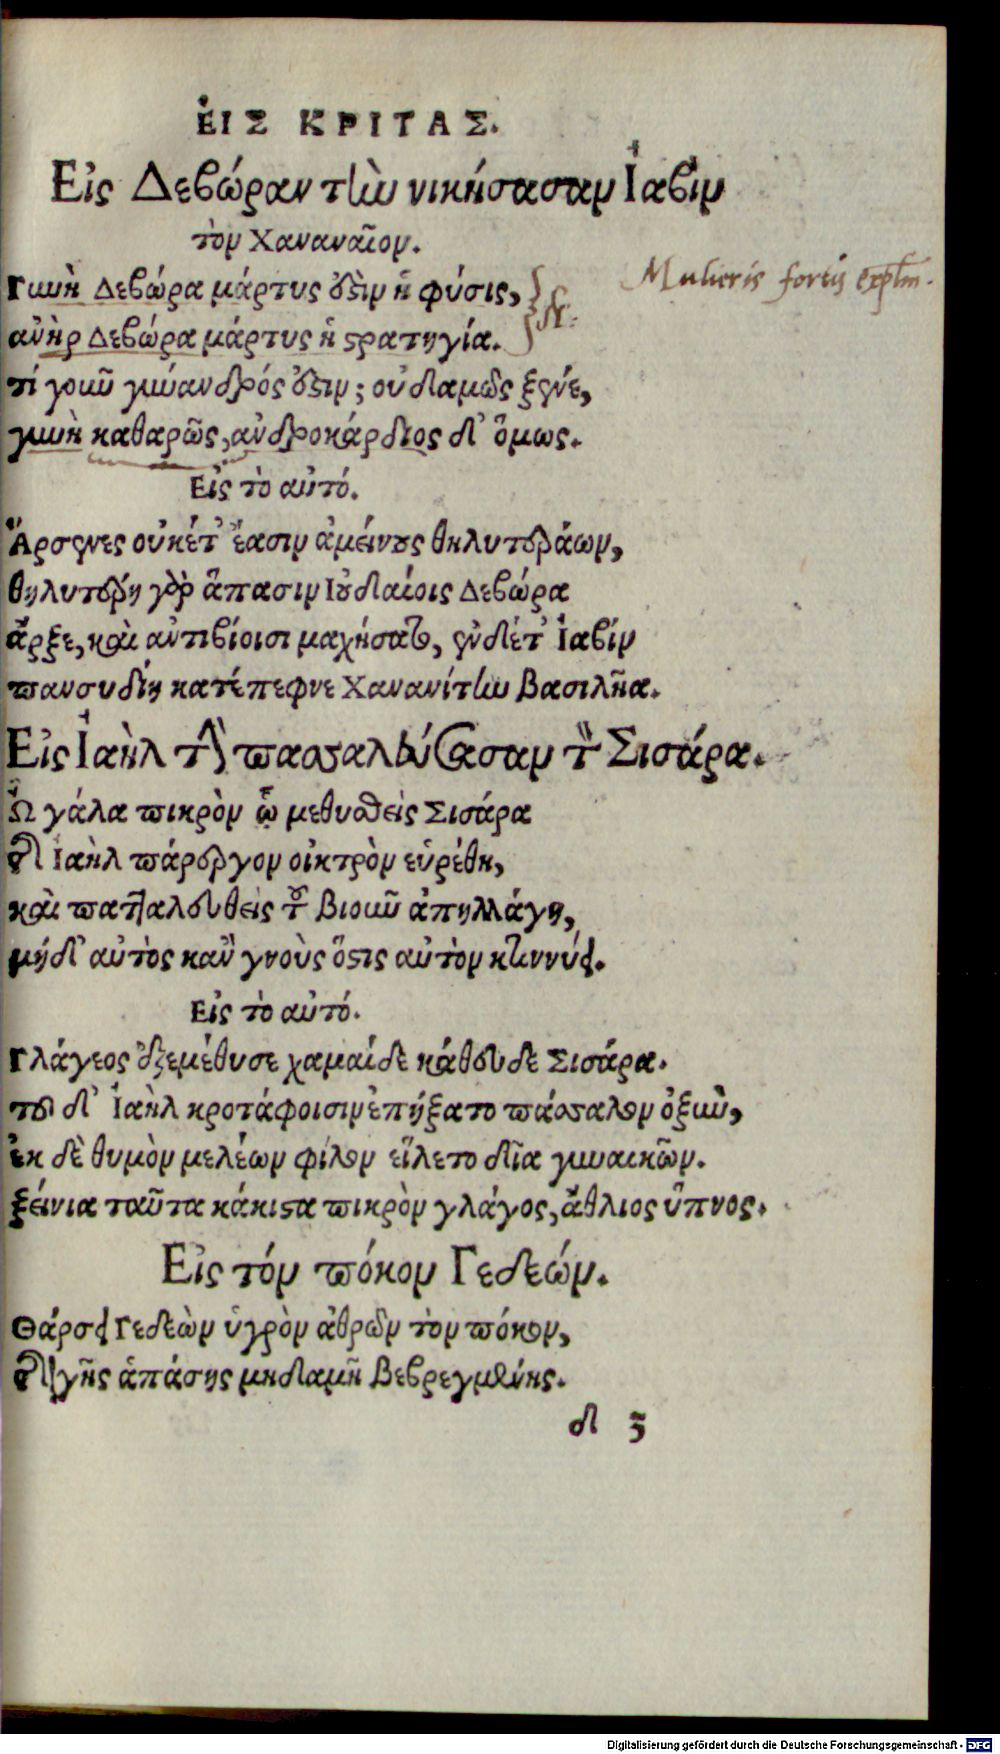 ἘΙΣ ΚΡΙΤΑΣ.
Εἰς Δεβώραν τὴν νικήσασαν Ἰαβὶν
τὸν Χαναναῖον.
Γυνὴ Δεβώρα μάρτυς ἐστὶν ἡ φύσις,
Mulieris fortis explm.
ἀνὴρ Δεβώρα μάρτυς ἡ στρατηγία.
τί γοιωῦ γύνανδρός ἐστιν; οὐδαμῶς ξένε,
γυνὴ καθαρῶς, ἀνδροκάρδιος δ' ὅμως.
Εἰς τὸ αὐτό.
Ἄρσενες οὐκέτ' ἔασιν ἀμείνους θηλυτεράων,
θηλυτέρη γὰρ ἅπασιν Ἰουδαίοις Δεβώρα
ἄρξε, καὶ ἀντιβίοισι μαχήσατο, ἐνδέτ' Ἰαβίν
πανσυδίῃ κατέπεφνε Χανανίτην βασιλῆα.
Εἰς Ἰαὴλ τὴν πασσαλεύσασαν τὸν Σισάρα.
Ὦ γάλα πικρὸν ᾧ μεθυσθεὶς Σισάρα
τῆς Ἰαὴλ πάρεργον οἰκτρὸν εὑρέθη,
καὶ πατταλευθεὶς τοῦ βιοιωῦ ἀπηλλάγη,
μήδ' αὐτὸς κἂν γνοὺς ὅστις αὐτὸν κτιννύει.
Εἰς τὸ αὐτό.
Γλάγεος ἐξεμέθυσε χαμαίδε κάθευδε Σισάρα.
τῷ δ' Ἰαὴλ κροτάφοισιν ἐπήξατο πάσσαλον ὀξιωῦ,
ἐκ δὲ θυμὸν μελέων φίλον εἵλετο δῖα γυναικῶν.
ξείνια ταῦτα κάκιστα πικρὸν γλάγος, ἄθλιος ὕπνος.
Εἰς τόν πόκον Γεδεών.
Θάρσει Γεδεὼν ὑγρὸν ἀθρῶν τὸν πόκον,
τῆς γῆς ἁπάσης μηδαμῆ βεβρεγμένης.
δ 3
Digitalisierung gefördert durch die Deutsche Forschungsgemeinschaft - DFG